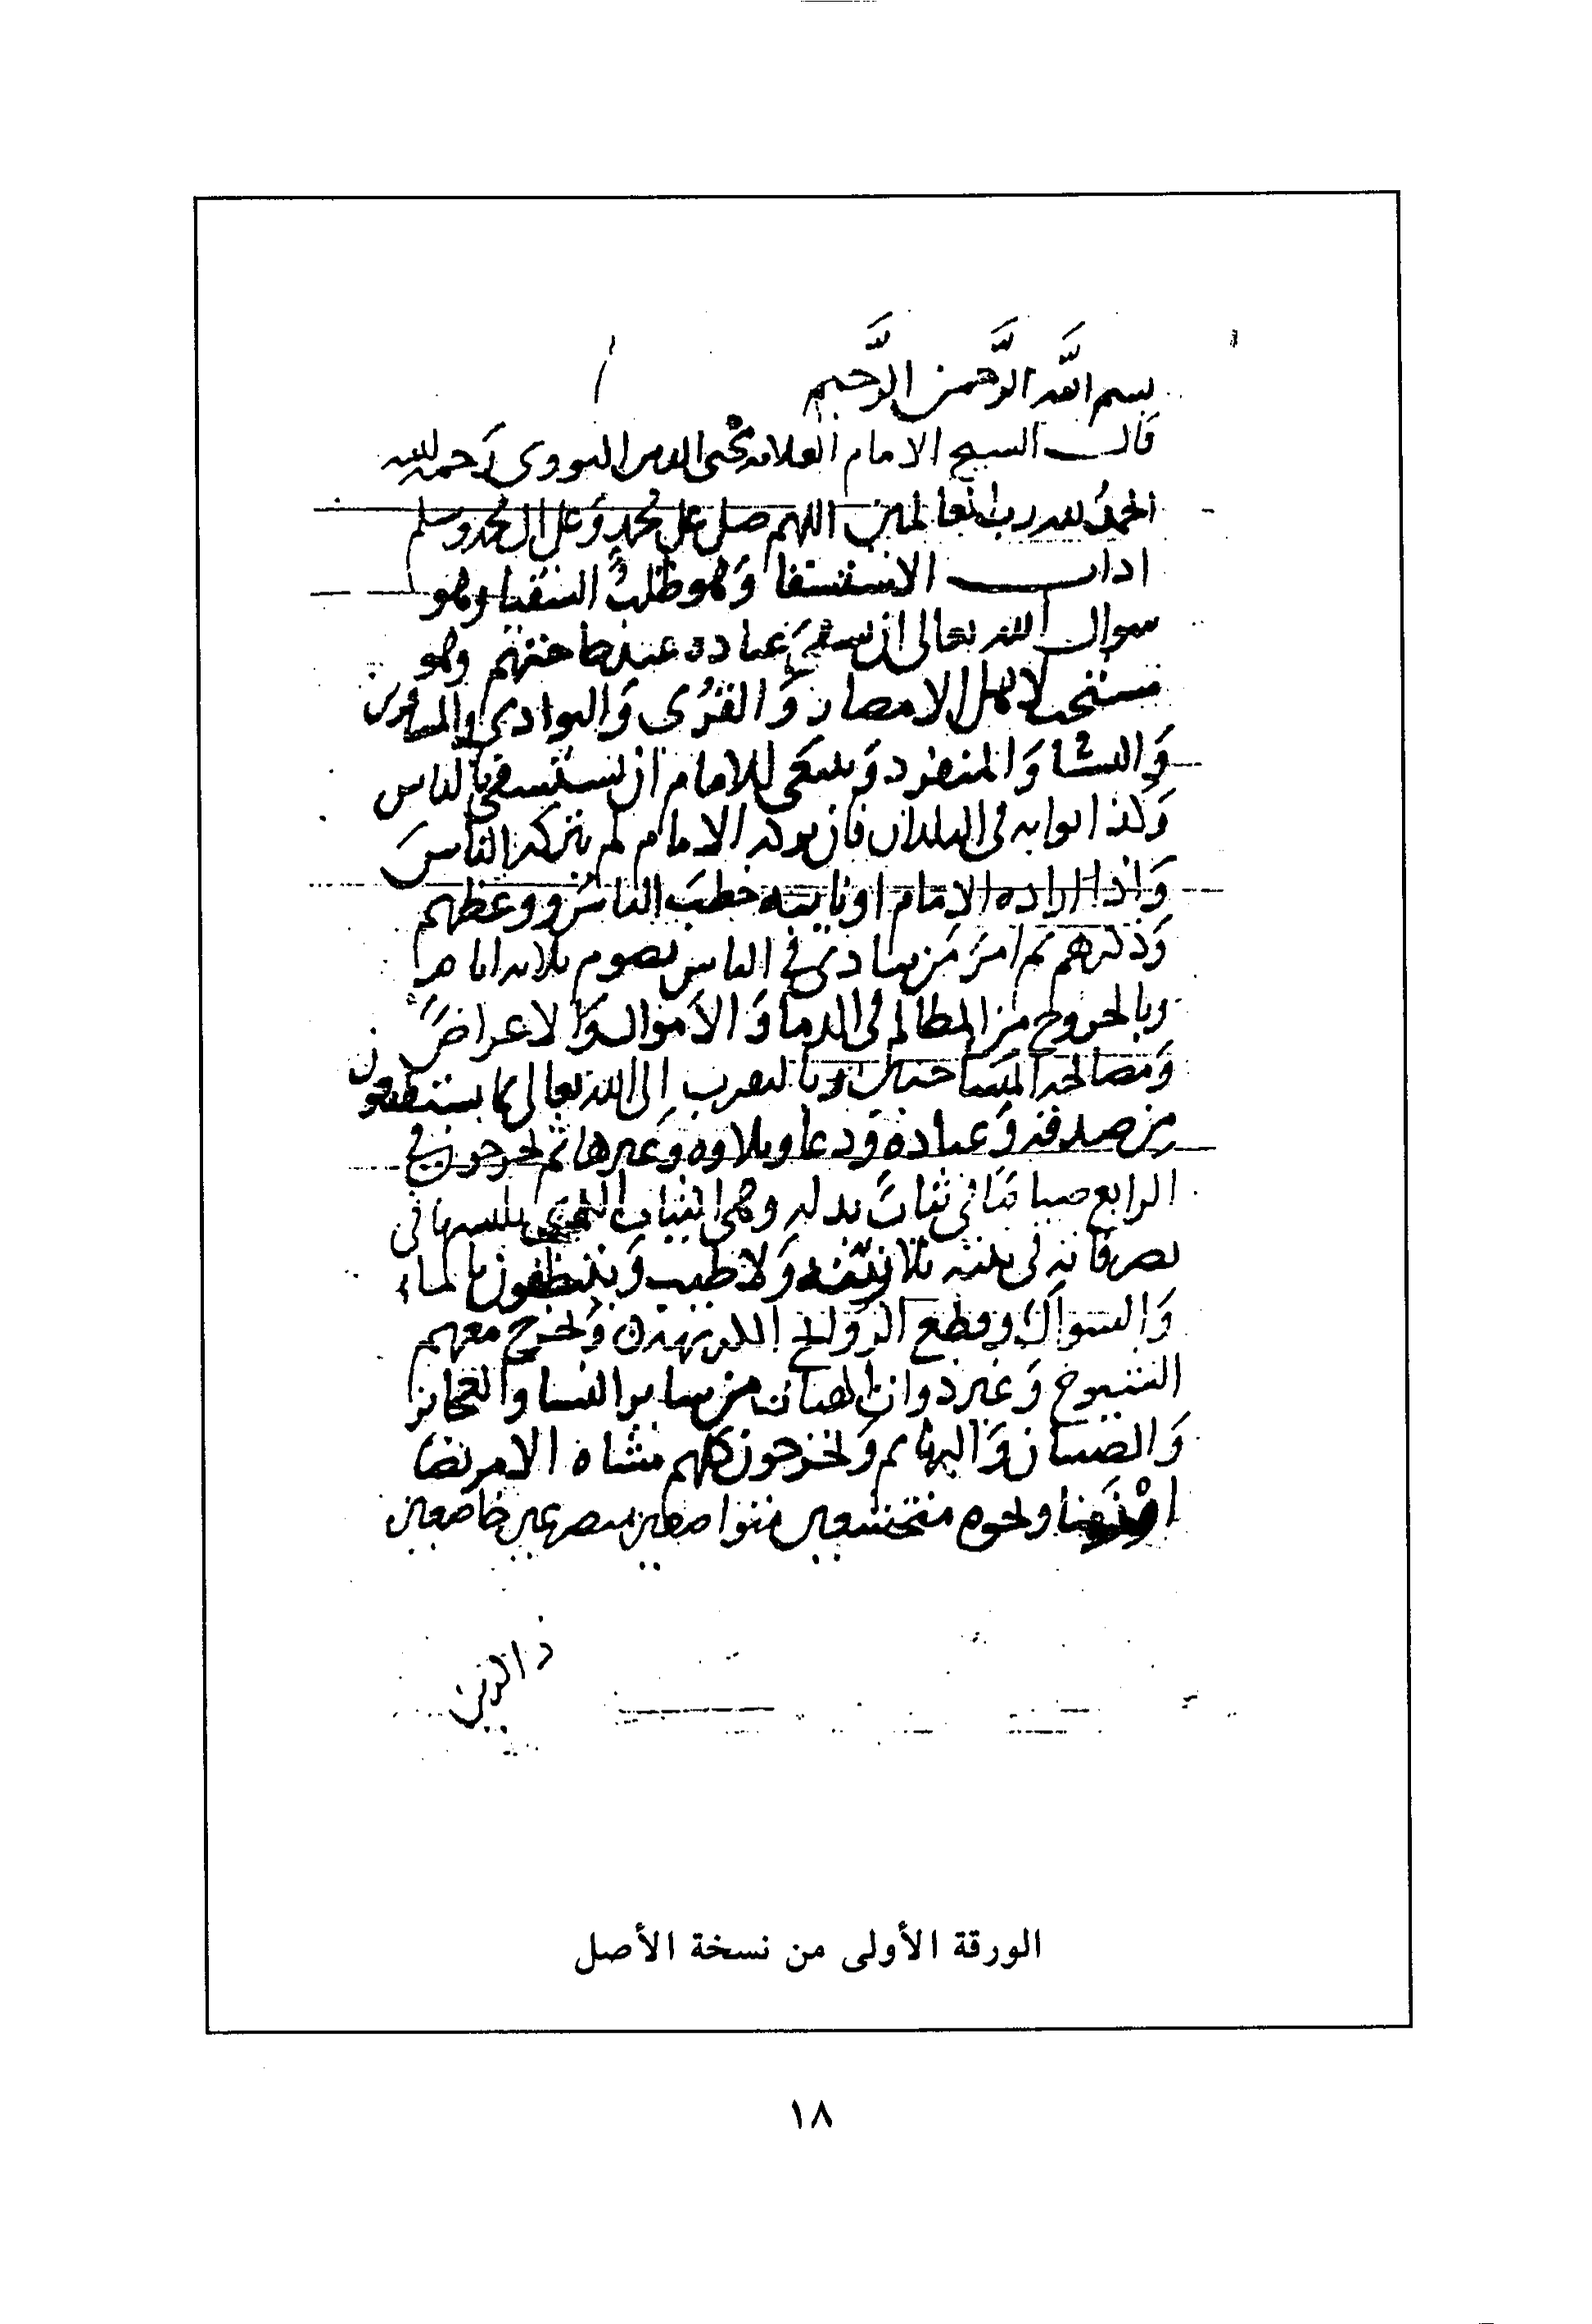 بسم الله الرحمن الرحيم
قال الشيخ الامام العلامه محيى الدين النووى رحمه الله
الحمد لله رب العالمين اللهم صل على محمد وعلى ال محمد وسلم
اداب الاستسقا وهو طلب السقيا وهو
سوال الله تعالى ان يسقى عباده عند حاجتهم وهو
مستحب لاهل الامصار والقرى والبوادى والمسافرين
والنسا والمنفرد وينبغى للامام ان يستسقى بالناس
وكذا نوابه فى البلدان فان تركه الامام لم يتركه الناس
واذا اراده الامام او نايبه خطب الناس ووعظهم
وذكرهم ثم امر من ينادى فى الناس بصوم ثلاثه ايام
وبالخروج من المظالم فى الدما والاموال والاعراض
ومصالحه المتشاحنين وبالتقرب الى الله تعالى بما يستطيعون
من صدقه وعباده ودعا وتلاوه وغيرها ثم يخرجون فى
الرابع صياما فى ثياب بذله وهى الثياب التى يلبسها فى
تصرفاته فى بيته بلا زينه ولا طيب ويتنظفون بالماء
والسواك وقطع الروايح الكريهه ويخرج معهم
الشيوخ وغير ذوات الهيات من ساير النسا والعجايز
والصبيان والبهايم ويخرجون كلهم مشاه الا مريضا
او نحوه متخشعين متواضعين متضرعين خاضعين
الورقة الأولى من نسخة الأصل
١٨